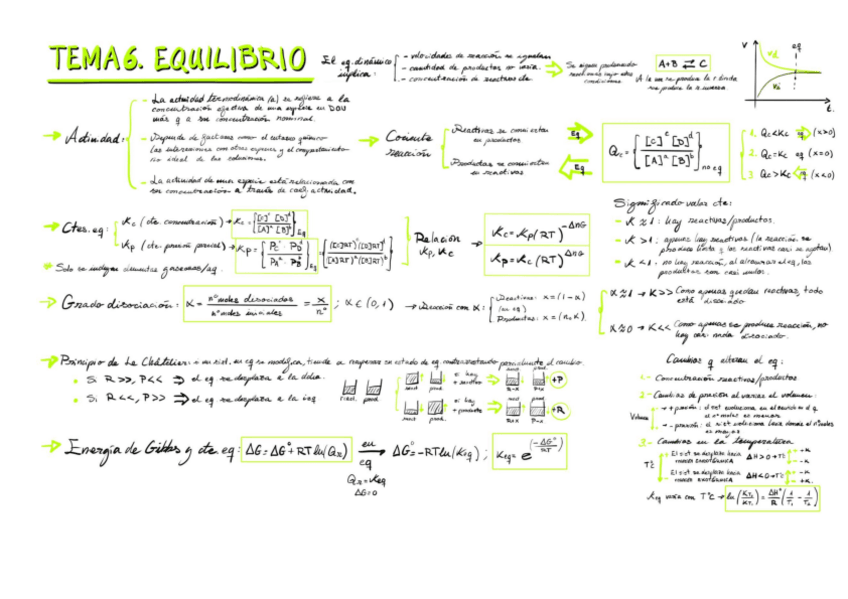 TEMA 6. EQUILIBRIO
El eq. dinámico implica:
- velocidades de reacción se igualan
- cantidad de productos no varía.
- concentración de reactivos cte.
Se siguen produciendo reacciones bajo estas condiciones
A+B ⇄ C
A la vez se produce la r. directa se produce la r. inversa.
V
eq
t.
→ Actividad:
- La actividad termodinámica (a) se refiere a la
concentración efectiva de una especie en DON
más q a su concentración nominal.
- Depende de factores como el entorno químico
las interacciones con otras especies y el comportamiento
no ideal de las soluciones.
- La actividad de una especie está relacionada con
su concentración a través de coef. actividad.
→ Cociente reacción
Reactivos se convierten en productos
Productos se convierten en reactivos
Eq
Eq
Qc = { [C]^c [D]^d / [A]^a [B]^b } no eq
1. Qc < Kc eq (x>0)
2. Qc = Kc eq (x=0)
3. Qc > Kc eq (x<0)
→ Ctes. eq:
Kc (cte. concentración) → Kc = { [C]^c [D]^d / [A]^a [B]^b } Eq
Kp (cte. presión parcial) → Kp = { Pc^c · PD^d / PA^a · PB^b } Eq
* Solo se incluyen elementos gaseosos/aq.
Relación Kp, Kc →
Kc = Kp (RT)^-ΔnG
Kp = Kc (RT)^ΔnG
Significado valor cte:
- K ≈ 1: hay reactivos/productos.
- K > 1: apenas hay reactivos (la reacción se
produce hasta q los reactivos casi se agotan).
- K < 1: no hay reacción, al alcanzar el eq, los
productos son casi nulos.
→ Grado disociación: α = nº moles disociados / nº moles iniciales = x / nº ; α ∈ (0,1)
→ Reacción con α:
Reactivos: x = (1-α)
(no eq)
Productos:
α ≈ 1 → K>> Como apenas quedan reactivos, todo
está disociado
α ≈ 0 → K<<< Como apenas se produce reacción, no
hay casi nada disociado.
→ Principio de Le Châtelier: si un sist. en eq se modifica, tiende a recuperar su estado de eq contrarrestando parcialmente el cambio.
• Si R>>, P<< ⇒ el eq se desplaza a la dcha.
• Si R<<, P>> ⇒ el eq se desplaza a la izq
react. prod.
si hay + reactivo
+P
si hay + producto
+R
Cambios q alteran el eq:
1- Concentración reactivos/productos
2- Cambios de presión al variar el volumen:
Volumen
→ + presión: el sist evoluciona en el sentido d q
el nº moles es menor
→ - presión: el sist evoluciona hacia donde el nº moles
es mayor
3- Cambios en la temperatura
Tª
El sist se desplaza hacia
ΔH>0 → Tª
+K
-K
El sist se desplaza hacia
ΔH<0 → Tª
-K
+K
Keq varía con Tª → ln (KT2 / KT1) = ΔHº/R (1/T1 - 1/T2)
→ Energía de Gibbs y cte eq: ΔG = ΔGº + RT ln(Qx) en eq → ΔGº = -RT ln(Keq) ; Keq = e^(-ΔGº/RT)
Qx = Keq
ΔG = 0